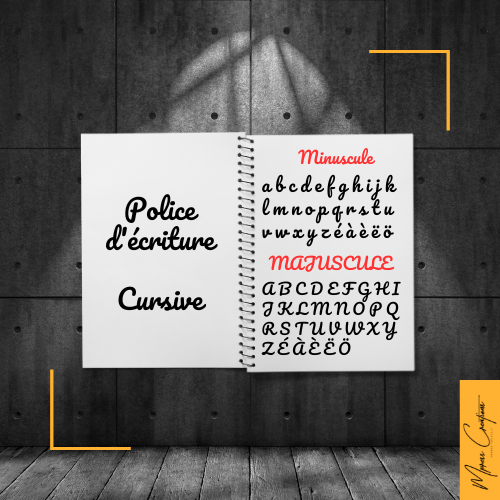 Police
d'écriture
Cursive
Minuscule
a b c d e f g h i j k
l m n o p q r s t u
v w x y z é à è ë ö
MAJUSCULE
A B C D E F G H I
J K L M N O P Q
R S T U V W X Y
Z É À È Ë Ö